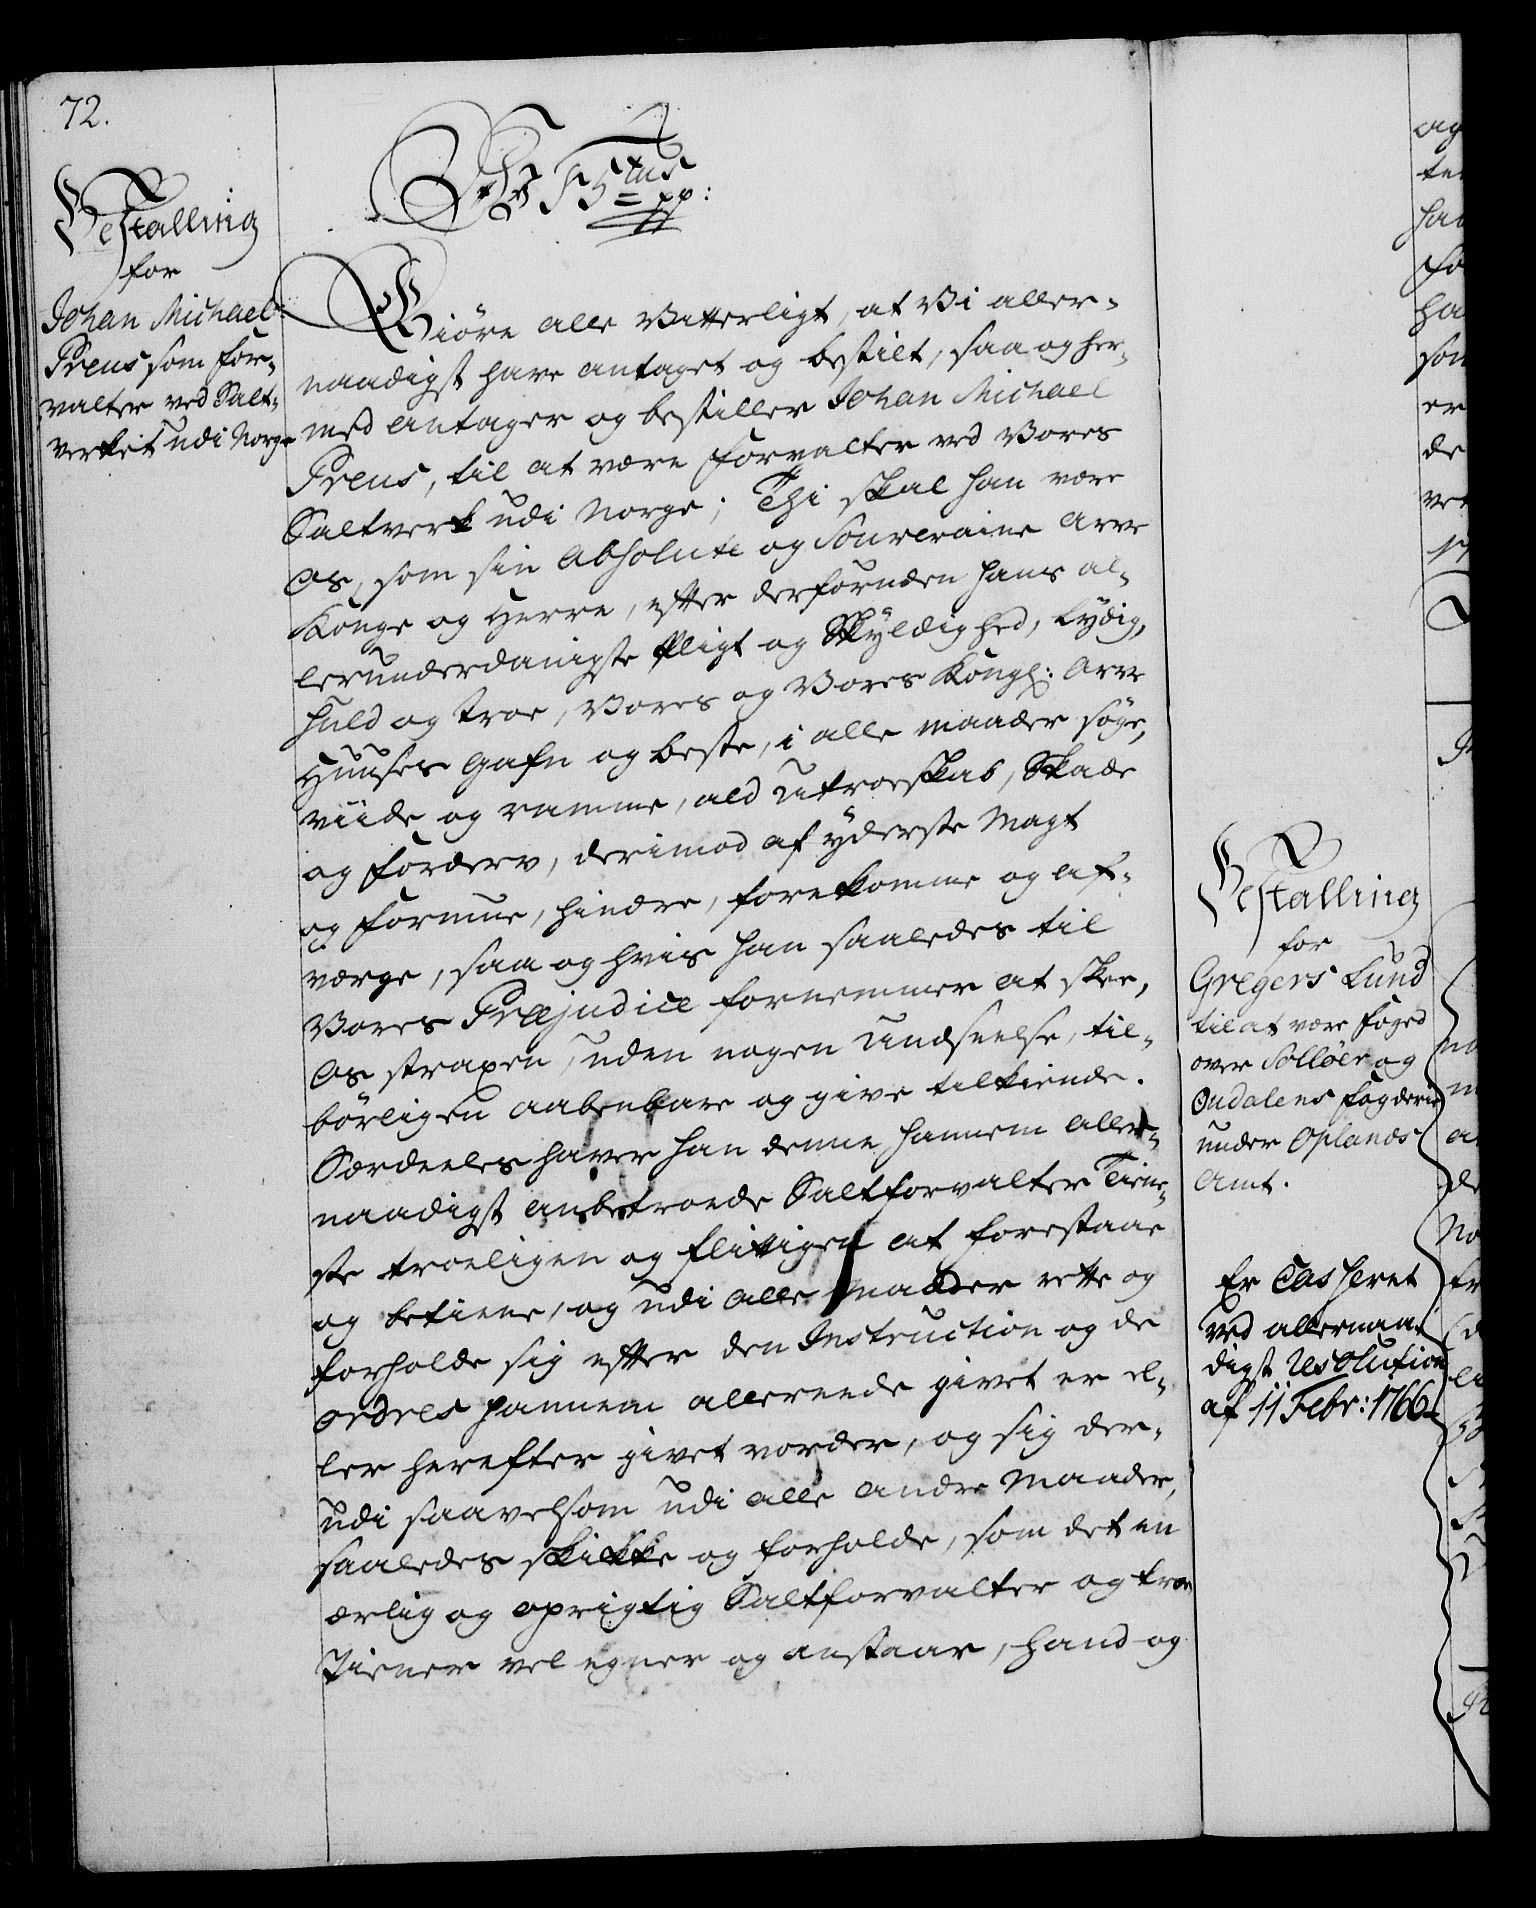 72.
Bestalling
for
Johan Michael
Preus som for-
valter ved Salt-
verket udi Norge
Wi F 5tus pp:
Giöre alle Vitterligt, at Vi aller-
naadigst have antaget og bestilt, saa og her-
med antager og bestiller Johan Michael
Preus, til at være Forvalter ved Vores
Saltverk udi Norge; Thi skal han være
Os, som sin Absolute og Souveraine Arve
Konge og Herre, efter derforuden hans al-
lerunderdanigste Pligt og Skyldighed, Lydig,
huld og troe, Vores og Vores Kongl: Arve
Huuses Gafn og beste, i alle maader søge,
viide og ramme, ald Utroeskab, Skade
og Forderv, derimod af yderste Magt
og Formue, hindre, forekomme og af-
værge, saa og hvis han saaledes til
Vores Præjudice fornemmer at skee,
Os straxen, uden nogen Undseelse, til-
börligen aabenbare og give tilkiende.
Særdeeles haver han denne hannem aller-
naadigst anbetroede Saltforvalter Tiene-
ste troeligen og flittigen at forestaae
og betiene, og udi alle Maader rette og
forholde sig efter den Instruction og de
Ordres hannem allereede givet er el-
ler herefter givet vorder, og sig der-
udi saavelsom udi alle andre Maader,
saaledes skikke og forholde, som det en
ærlig og oprigtig Saltforvalter og troe
Tiener vel egner og anstaar, hand og
Bestalling
for
Gregers Lund
til at være Foged
over Solløer og
Oudalens Fogderie
under Oplands
Amt.
Er Casheret
ved allernaa-
digst Resolution
af 11 Febr: 1766